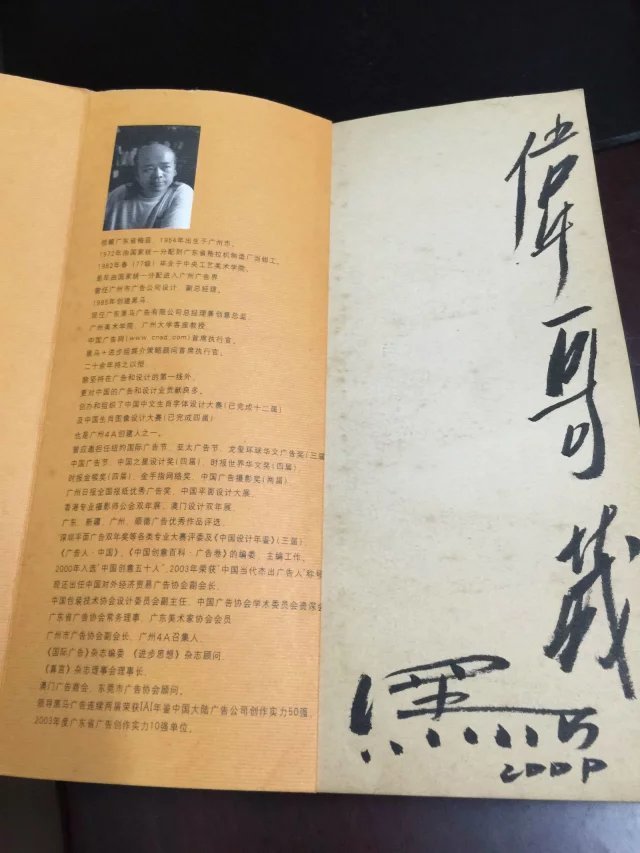 祖籍广东省梅县，1954年出生于广州市。
1972年由国家统一分配到广东省拖拉机制造厂当钳工。
1982年春（77级）毕业于中央工艺美术学院。
是年由国家统一分配进入广州广告界
曾任广州市广告公司设计、副总经理。
1985年创建黑马
现任广东黑马广告有限公司总经理兼创意总监、
广州美术学院、广州大学客座教授、
中国广告网(www.cnad.com)首席执行官、
黑马+进步组媒介策略顾问首席执行官。
二十余年持之以恒
除坚持在广告和设计的第一线外，
更对中国的广告和设计业贡献良多。
创办和组织了中国中文生肖字体设计大赛(已完成十二届)
及中国生肖图像设计大赛(已完成四届)
也是广州4A创建人之一。
曾应邀担任纽约国际广告节、亚太广告节、龙玺环球华文广告奖(三届
中国广告节、中国之星设计奖(四届)、时报世界华文奖(四届)、
时报金犊奖(四届)、金手指网络奖、中国广告摄影奖(两届)、
广州日报全国报纸优秀广告奖、中国平面设计大展、
香港专业摄影师公会双年展、澳门设计双年展、
广东、新疆、广州、顺德广告优秀作品评选、
深圳平面广告双年奖等各类专业大赛评委及《中国设计年鉴》(三届)、
《广告人·中国》、《中国创意百科·广告卷》的编委、主编工作。
2000年入选"中国创意五十人"，2003年荣获"中国当代杰出广告人"称号
现还出任中国对外经济贸易广告协会副会长、
中国包装技术协会设计委员会副主任、中国广告协会学术委员会资深会
广东省广告协会常务理事、广东美术家协会会员
广州市广告协会副会长、广州4A召集人、
《国际广告》杂志编委《进步思想》杂志顾问、
《真言》杂志理事会理事长、
澳门广告商会、东莞市广告协会顾问。
领导黑马广告连续两届荣获[A]年鉴中国大陆广告公司创作实力50强、
2003年度广东省广告创作实力10强单位。
偉哥藏
黑馬